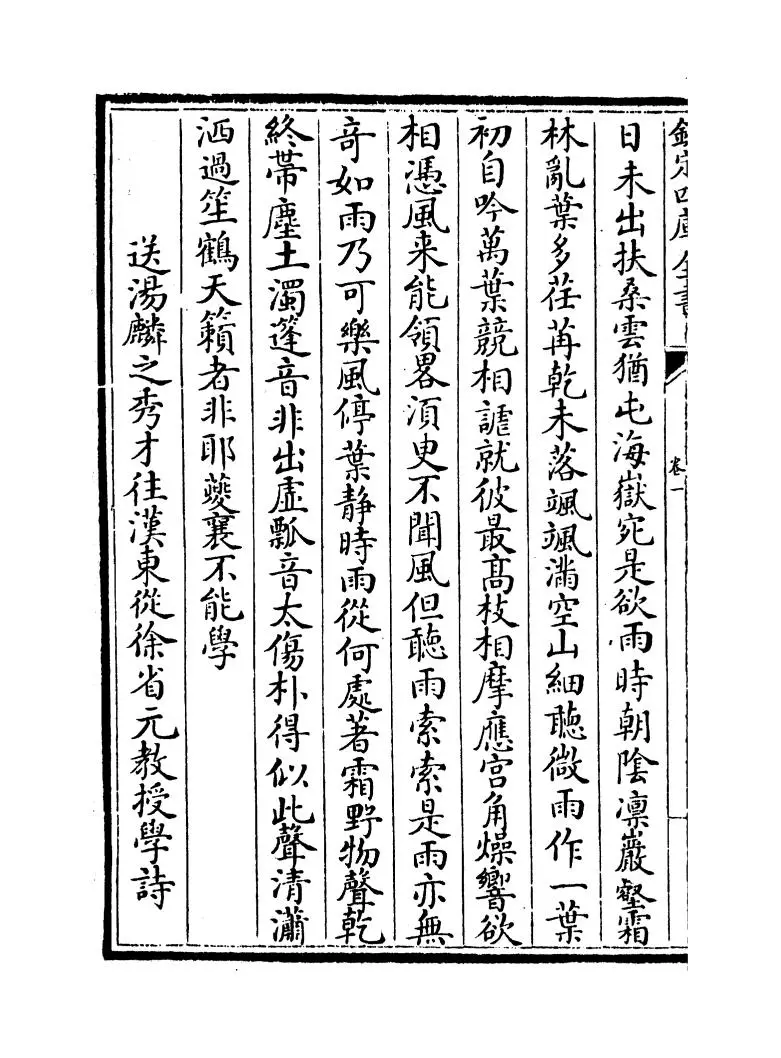 欽定四庫全書
卷一
日未出扶桑雲猶屯海嶽宛是欲雨時朝陰凛巖壑霜
林亂葉多荏苒乾未落颯颯滿空山細聽微雨作一葉
初自吟萬葉競相謔就彼最髙枝相摩應宫角燥響欲
相憑風来能領畧湏臾不聞風但聽雨索索是雨亦無
竒如雨乃可樂風停葉静時雨從何處著霜野物聲乾
終帯塵土濁蓬音非出虚瓢音太傷朴得似此聲清瀟
洒過笙鶴天籟者非耶夔襄不能學
送湯麟之秀才往漢東從徐省元教授學詩